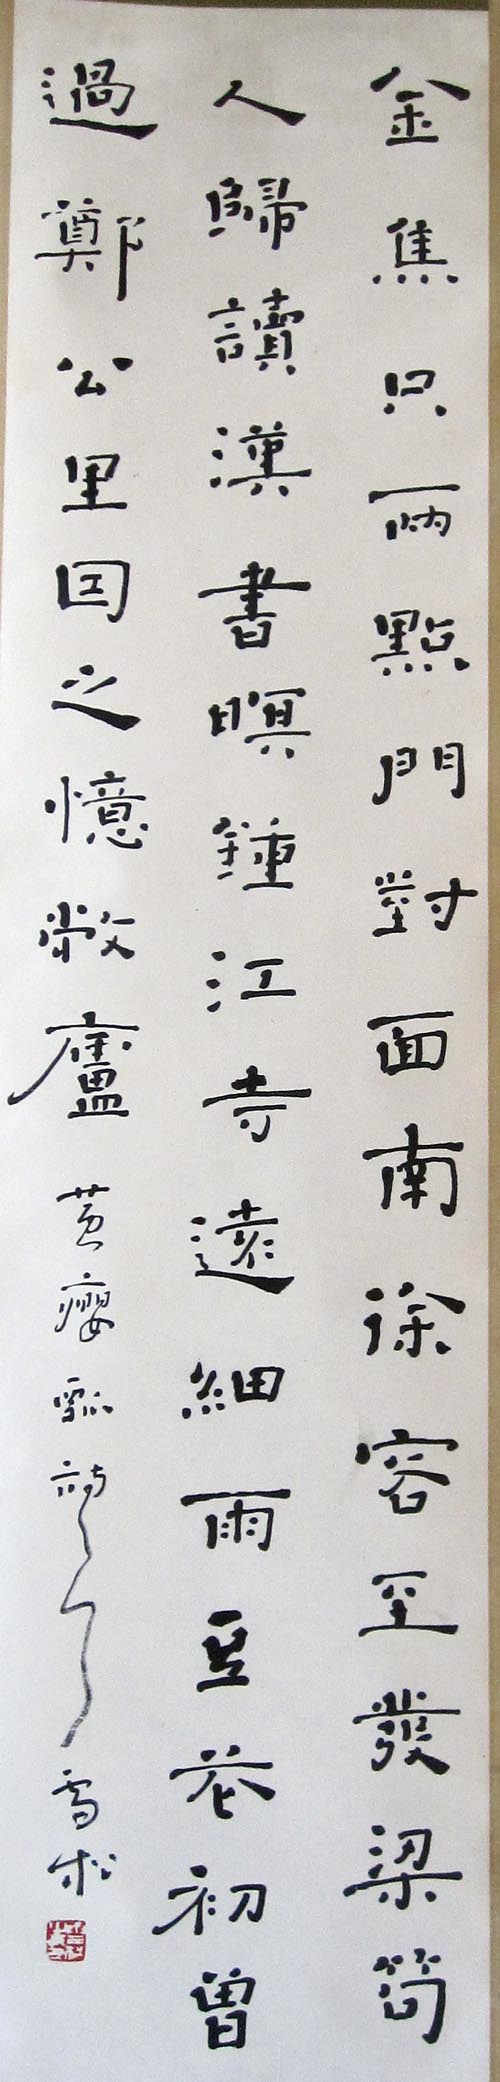 金焦只兩點門對面南徐容至發梁笱
人歸讀漢書暝鐘江寺遠細雨豆花初曾
過鄭公里因之憶敝廬 黃癭瓢詩 雪松